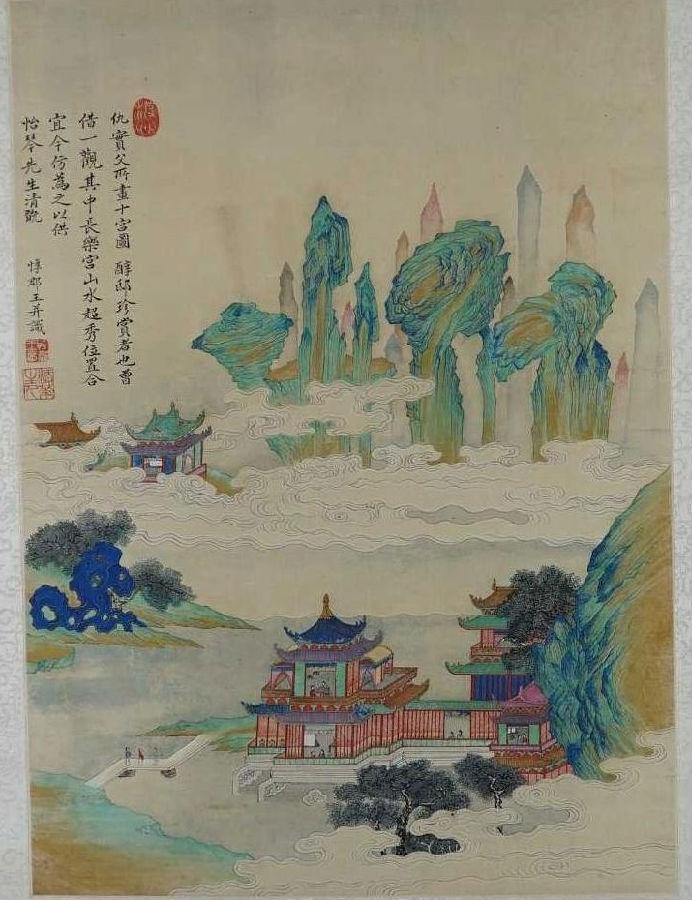 仇實父所畫十宮圖醇邸珍賞者也曾
借一觀其中長樂宮山水超秀位置合
宜今仿為之以供
怡琴先生清號
惇郡王并識